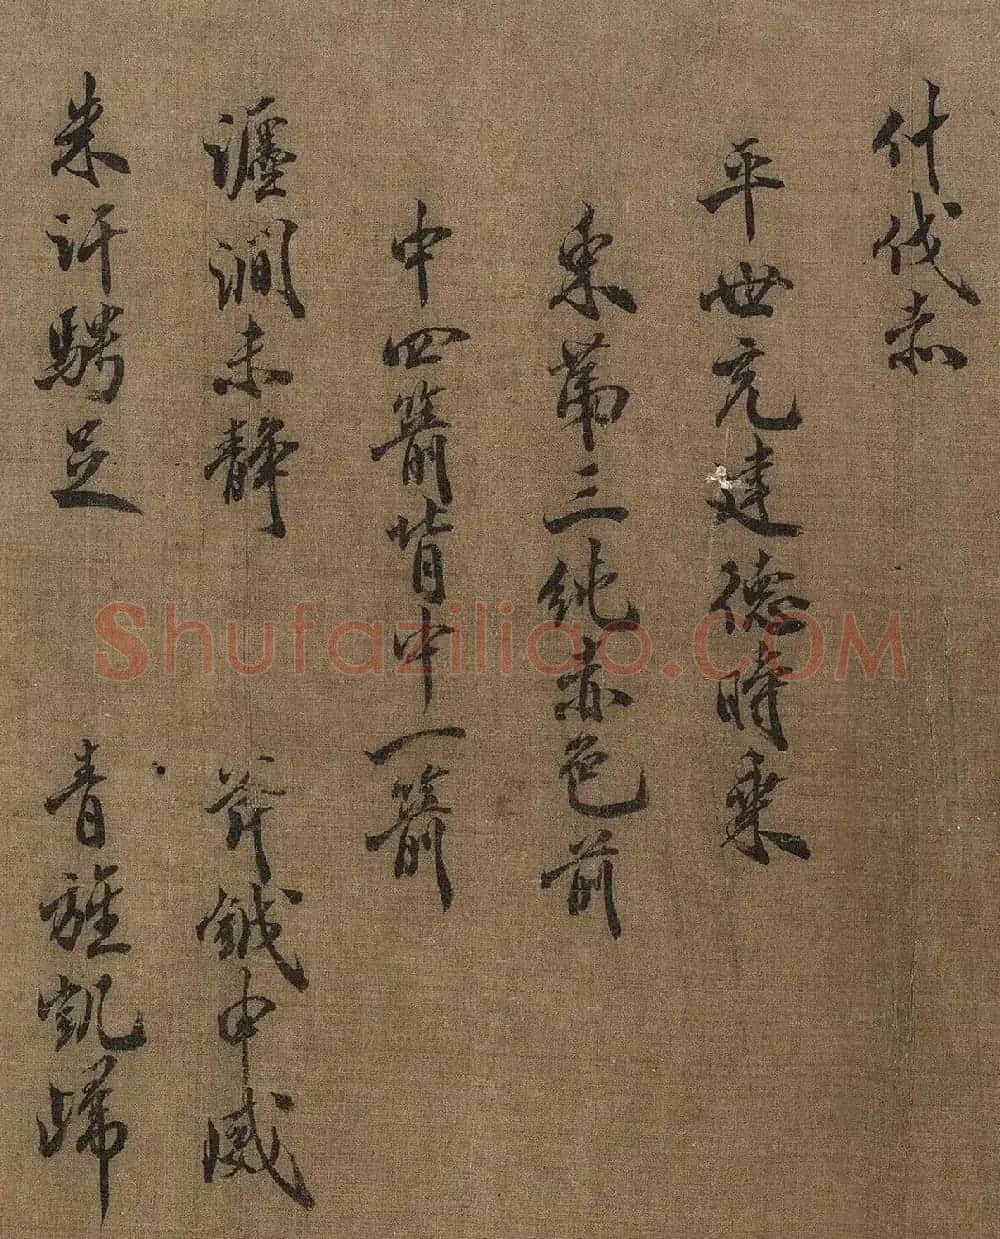 什伐赤
平世充建德時乘
東第三純赤色前
中四箭背中一箭
瀍澗未靜 斧鉞申威
朱汗騁足 青旌凱歸
Shufaziliao.COM